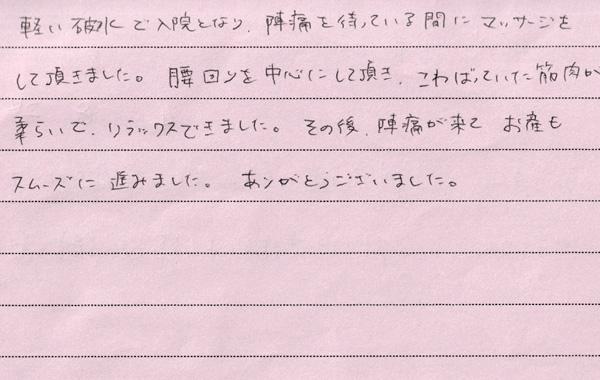 軽い破水で入院となり、陣痛を待っている間にマッサージを
して頂きました。腰回りを中心にして頂き、こわばっていた筋肉が
柔らいで、リラックスできました。その後、陣痛が来て お産も
スムーズに進みました。ありがとうございました。